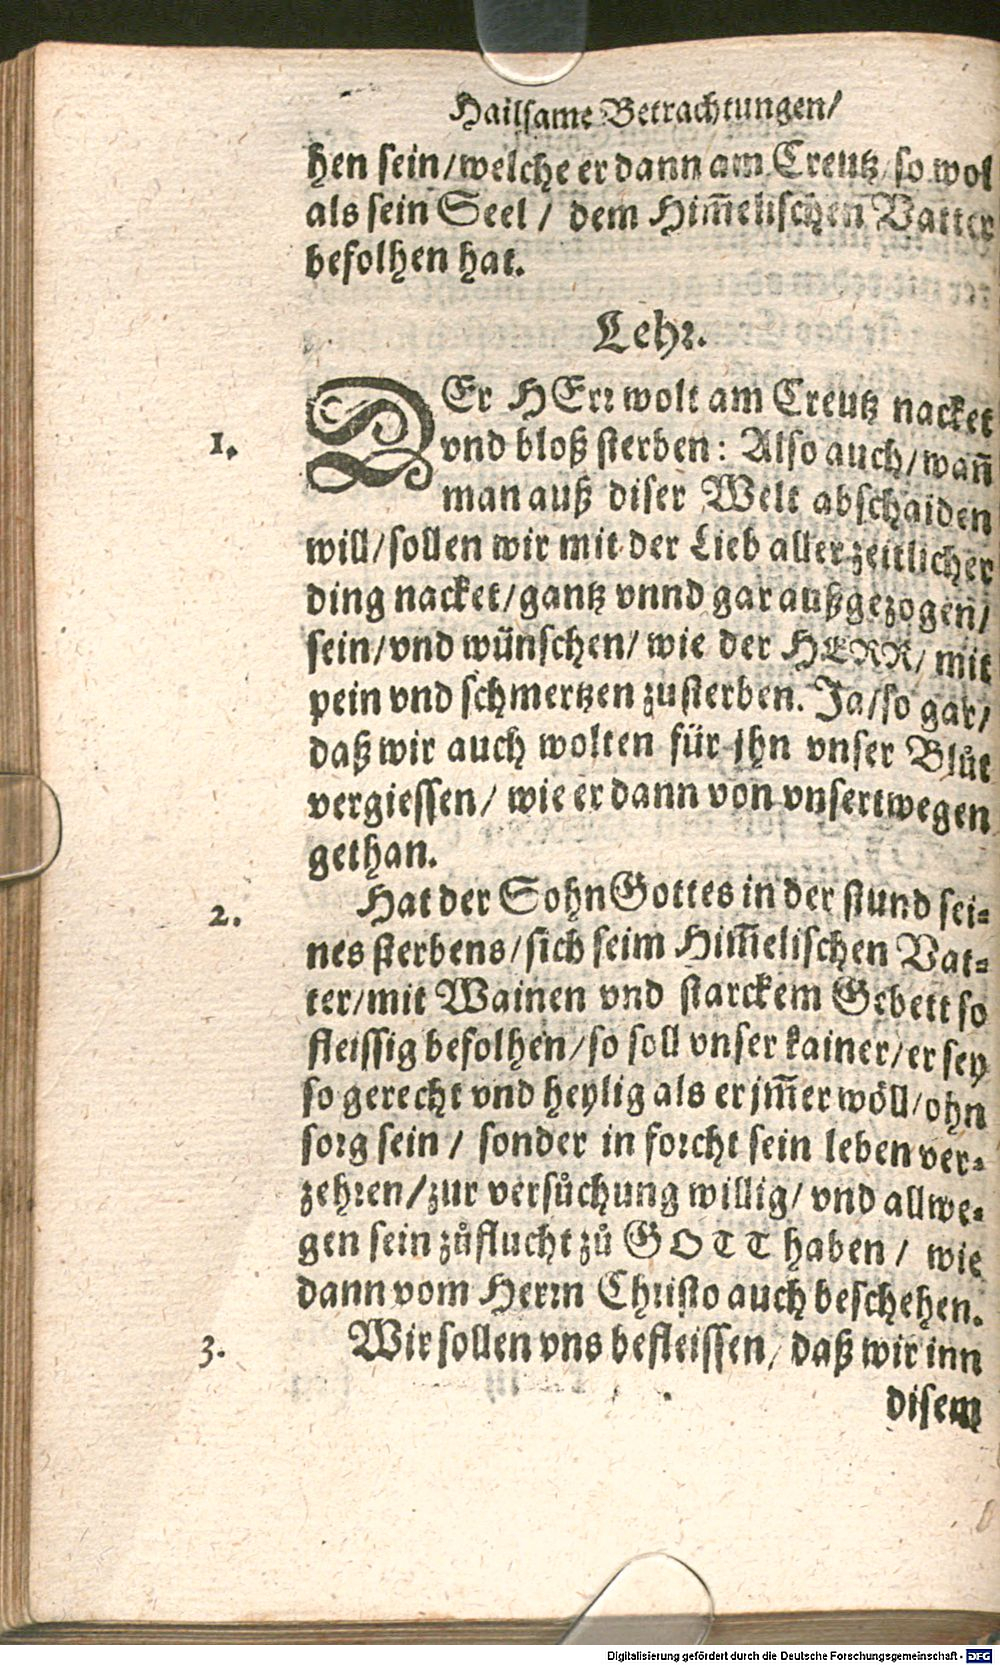 Hailsame Betrachtungen/
hen sein/welche er dann am Creutz/so wol
als sein Seel / dem Him̄elischen Vatter
befolhen hat.
Lehr.
1. DEr HErr wolt am Creutz nacket
vnd bloß sterben: Also auch/wañ
man auß diser Welt abschaiden
will/sollen wir mit der Lieb aller zeitlicher
ding nacket/gantz vnnd gar außgezogen/
sein/vnd wünschen/ wie der HERR/ mit
pein vnd schmertzen zusterben. Ja/so gar/
daß wir auch wolten für jhn vnser Blůt
vergiessen/ wie er dann von vnsertwegen
gethan.
2. Hat der Sohn Gottes in der stund sei-
nes sterbens/sich seim Him̄elischen Vat-
ter/mit Wainen vnd starckem Gebett so
fleissig befolhen/so soll vnser kainer/er sey
so gerecht vnd heylig als er jm̄er wöll/ohn
sorg sein / sonder in forcht sein leben ver-
zehren/zur versůchung willig/ vnd allwe-
gen sein zůflucht zů GOTT haben / wie
dann vom Herrn Christo auch beschehen.
3. Wir sollen vns befleissen/ daß wir inn
disem
Digitalisierung gefördert durch die Deutsche Forschungsgemeinschaft - DFG